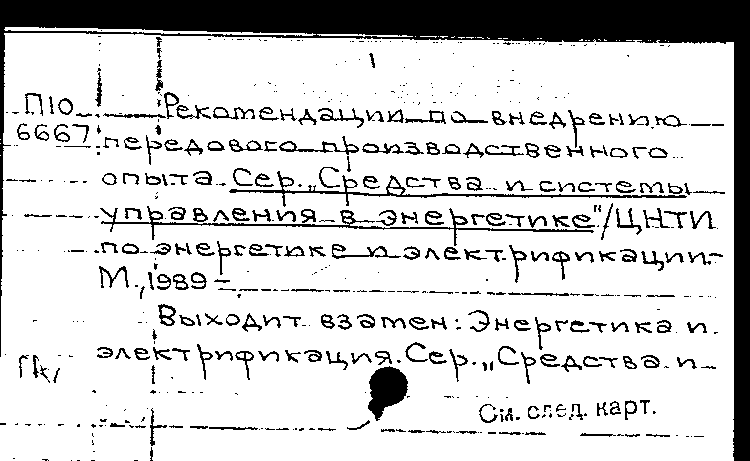 1
П10 Рекомендации по внедрению
6667 передового производственного
опыта. Сер. „Средства и системы
управления в энергетике"/ЦНТИ
по энергетике и электрификации.-
М., 1989 -
Выходит взамен: Энергетика и
электрификация. Сер. „Средства и
См. след. карт.